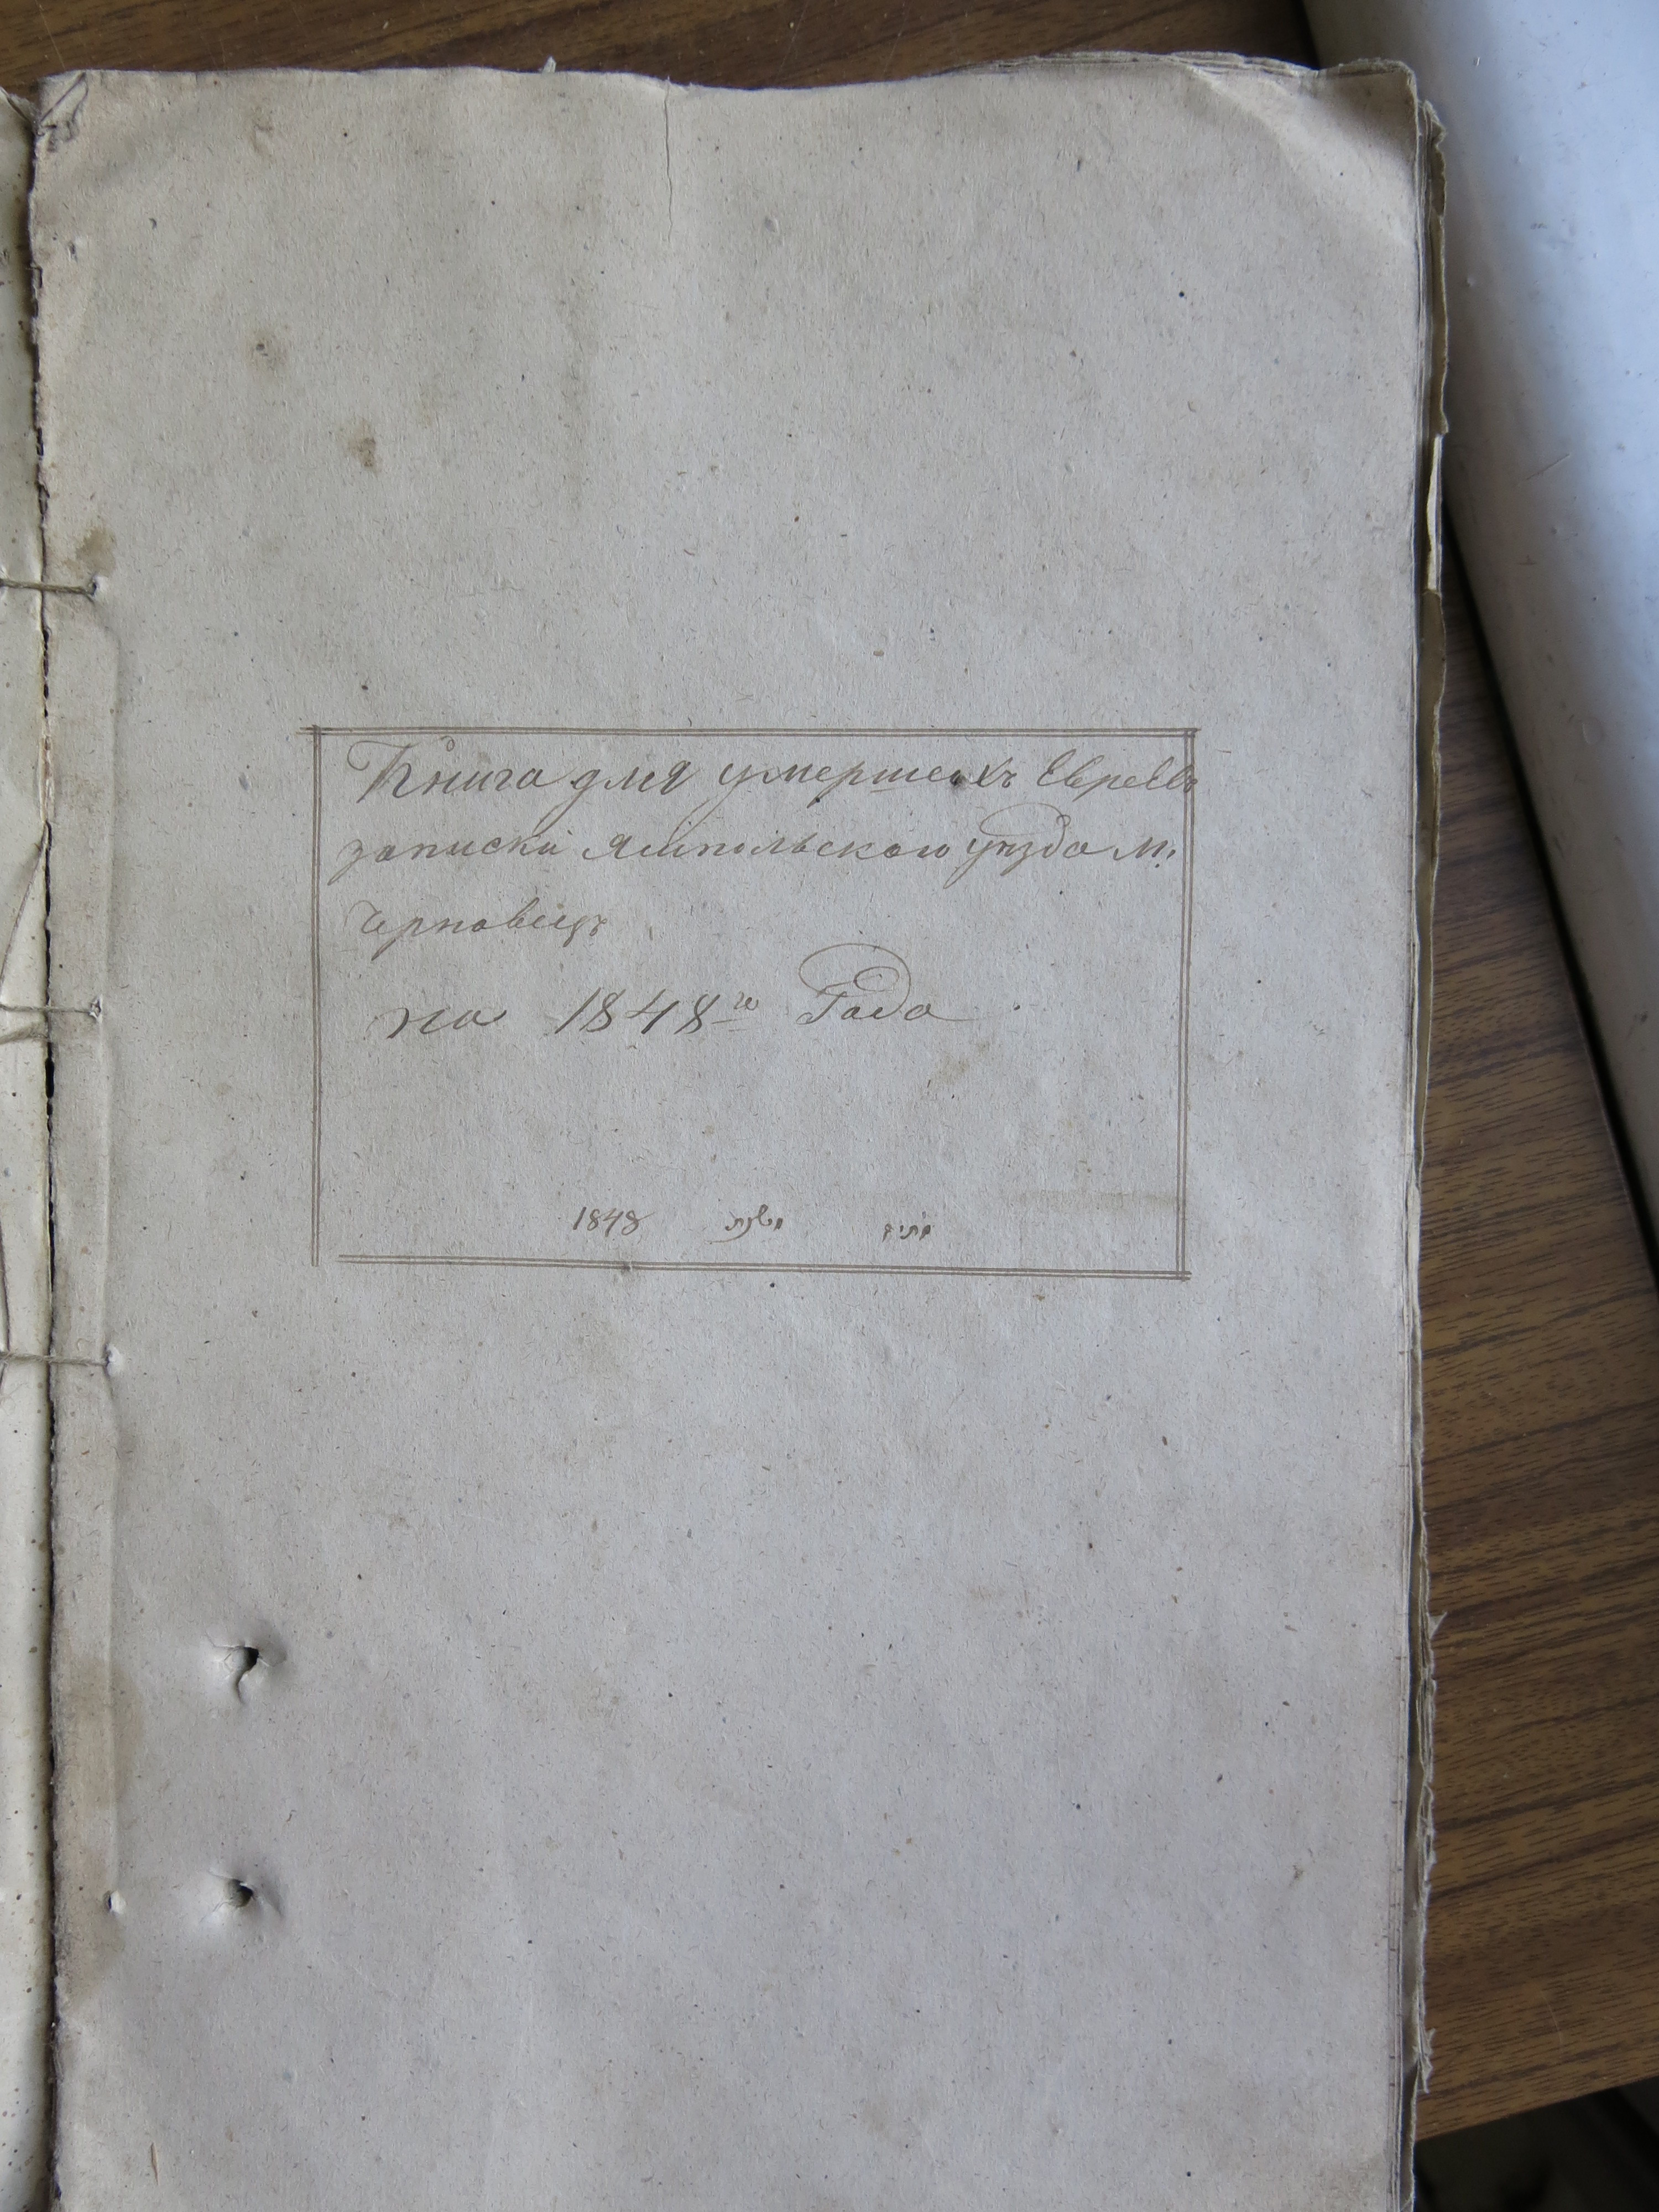 Книга для умершихъ Евреевъ
записки Ямпольскаго уѣзда м.
Черновецъ
на 1848го Года
1848